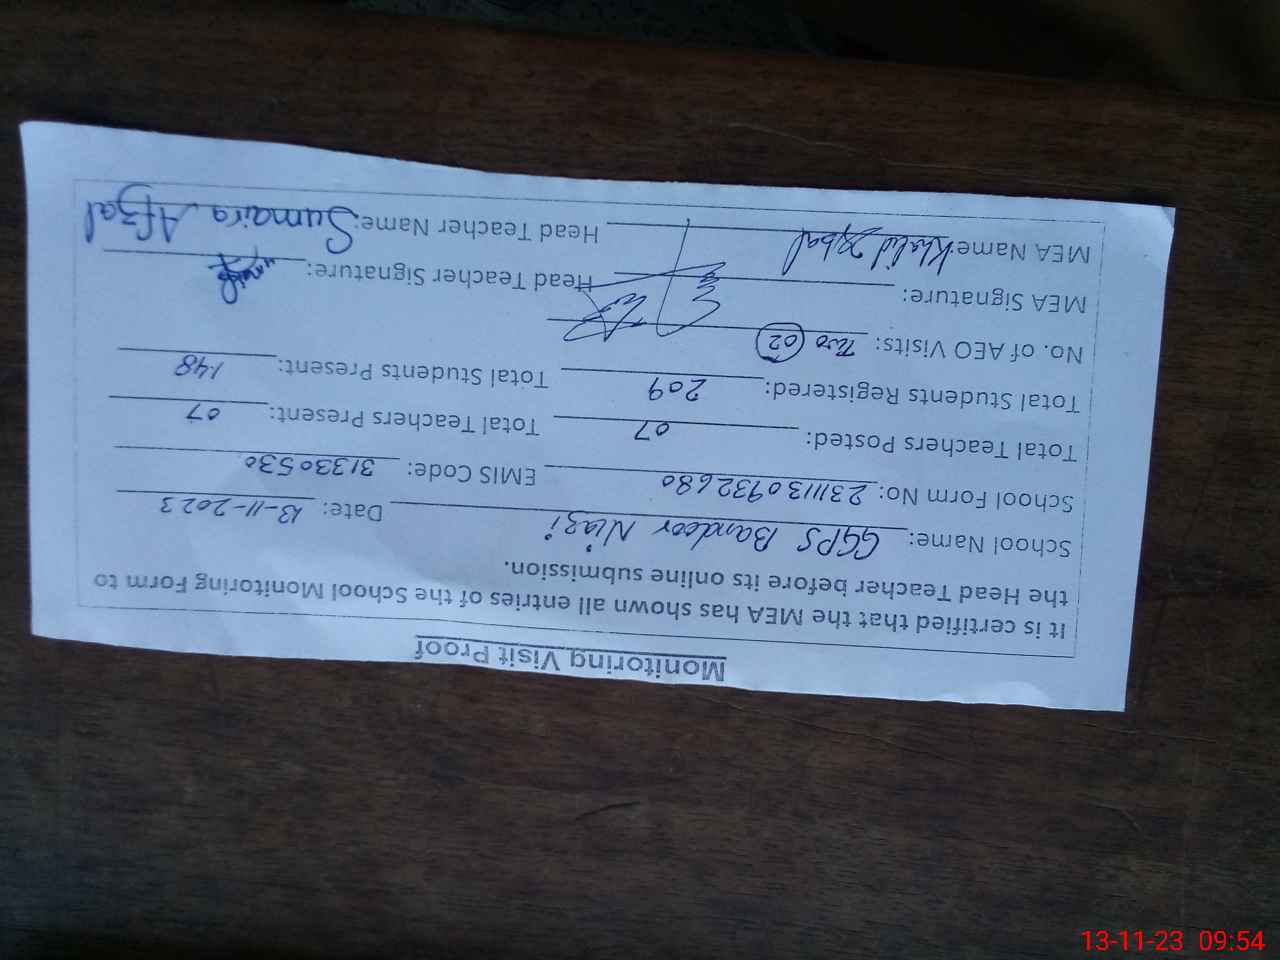 Monitoring Visit Proof
It is certified that the MEA has shown all entries of the School Monitoring Form to
the Head Teacher before its online submission.
School Name: GGPS Bandoor Niazi Date: 13-11-2023
School Form No: 2311130932680 EMIS Code: 31330530
Total Teachers Posted: 07 Total Teachers Present: 07
Total Students Registered: 209 Total Students Present: 148
No. of AEO Visits: Two (02)
MEA Signature: Head Teacher Signature:
MEA Name Khalid Iqbal Head Teacher Name: Sumaira Afzal
13-11-23 09:54